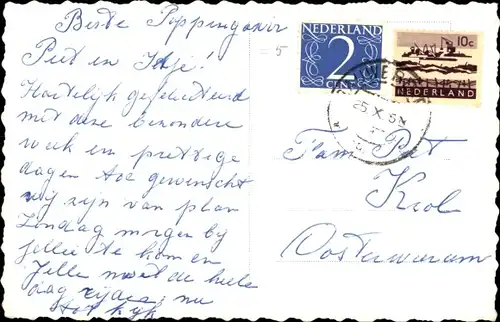 Beste Poppingavier
Piet en Itje!
Hartelijk gefeliciteerd
met deze bezondere
week en prettige
dagen toe gewenscht
wij zijn van plan
Zondag morgen bij
jellie te komen
Jelle moet de hele
dag
nu
tot kijk
= 5
NEDERLAND
2
CENT
10c
NEDERLAND
25.X.
Fam Piet
Krol
Oosterwierum